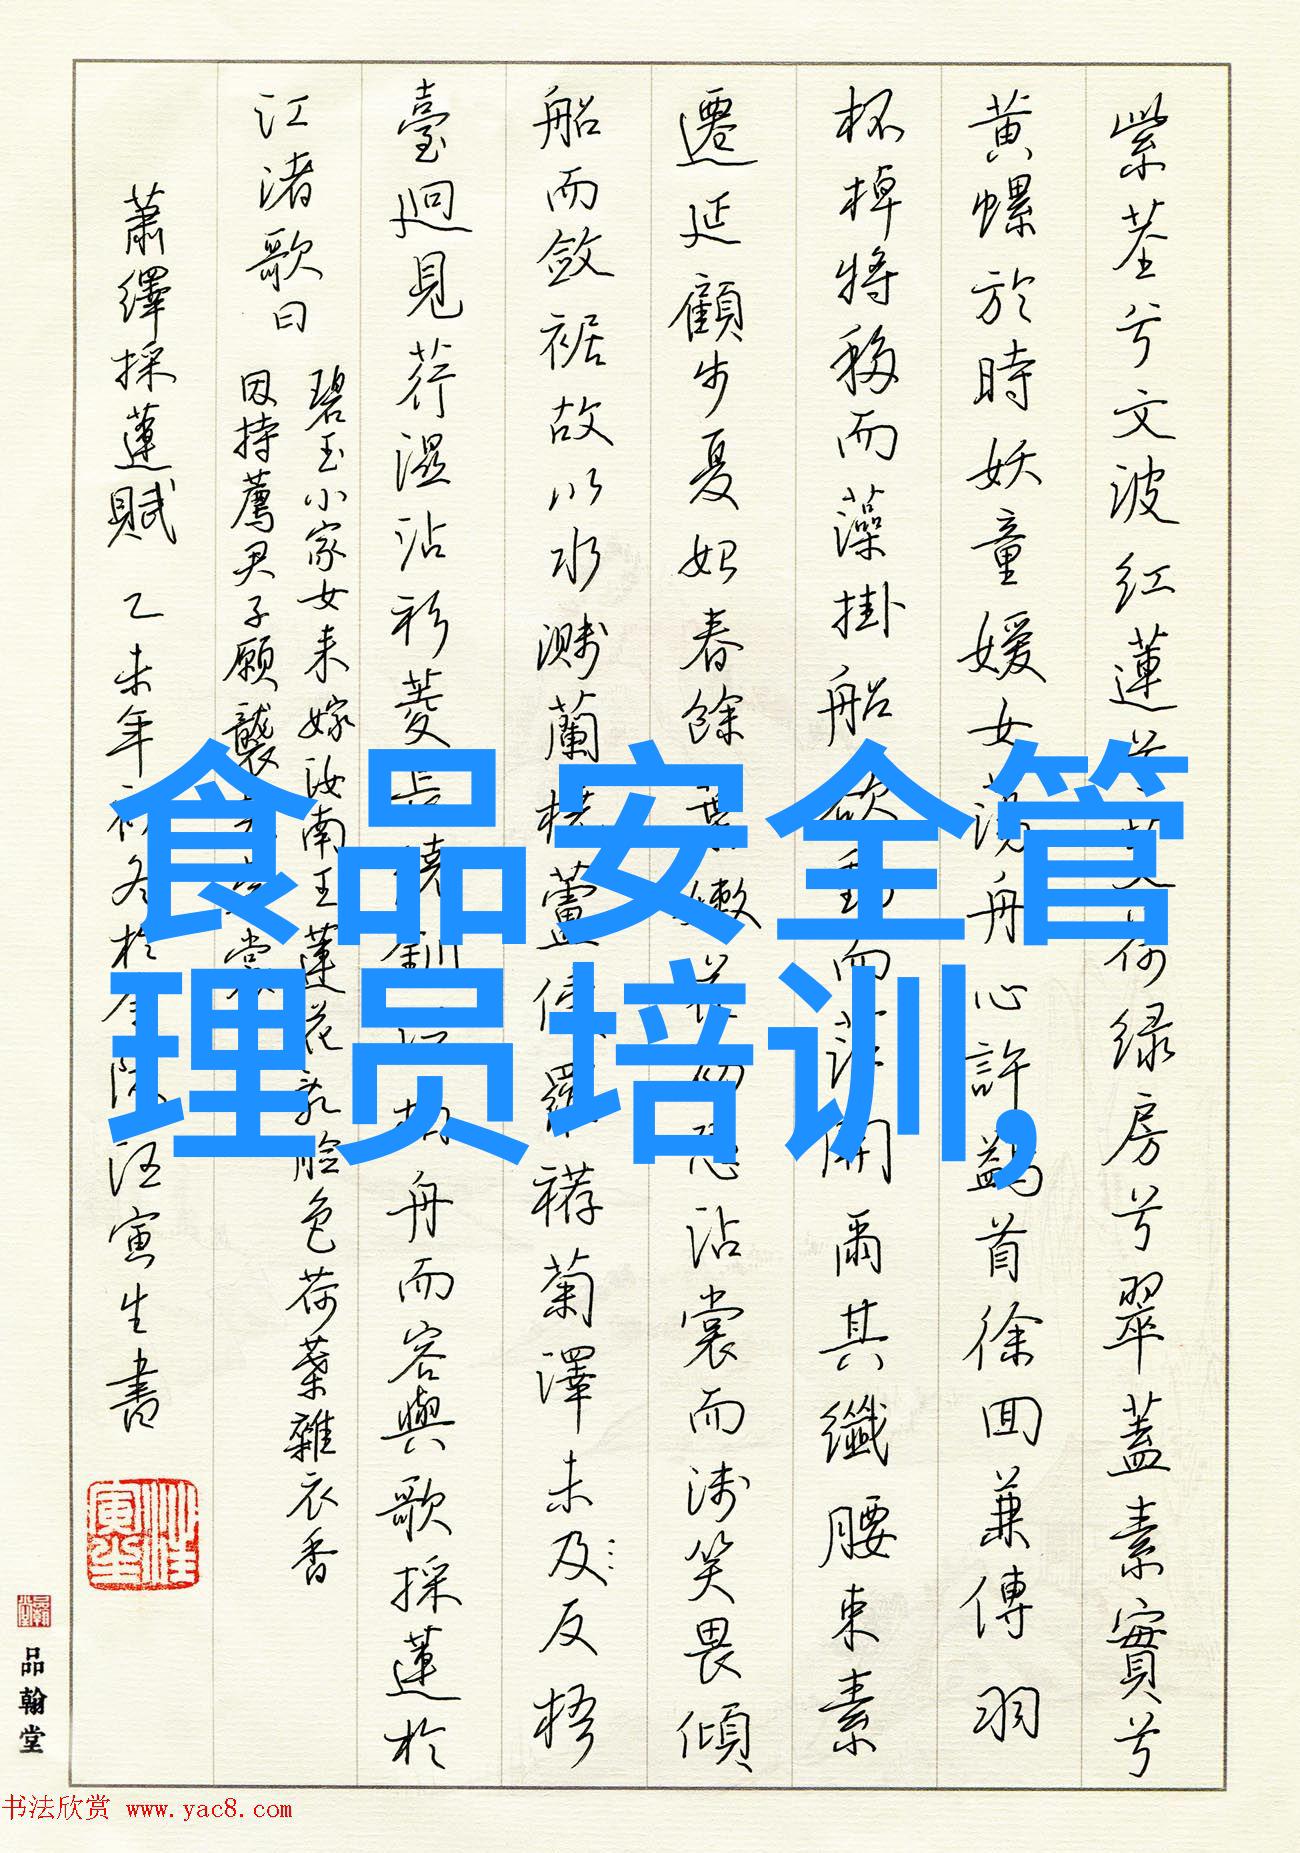 紫茎兮文波红蓮兮芰荷绿房兮翠蓋素實兮
黄螺於時妖童媛女蕩舟心許鷁首徐回兼傳羽
杯棹將移而藻掛船欲動而萍開爾其纖腰束素
遷延顧步夏始春餘葉嫩花初恐沾裳而淺笑畏傾
船而斂裾故以水濺蘭橈蘆侵羅菊澤未及反梧
臺迥見荇濕沾衫菱長繞釧泛柏舟而容與歌採蓮於
江渚歌曰
碧玉小家女来嫁汝南王蓮花乱脸色荷葉雜衣香
因持薦君子願襲芙蓉裳
蕭繹採蓮賦 乙未年初冬於金陵汪寅生書
品翰堂
食品安全管
理员培训,
书法欣赏 www.yac8.com